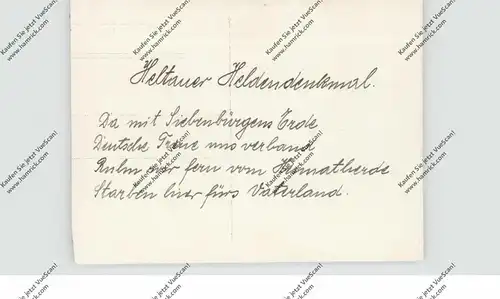 Heltauer Heldendenkmal.
Da mit Siebenbürgens Erde
Deutsche Treue uns verband
Ruhn wir fern vom Heimatherde
Starben hier fürs Vaterland.
Kaufen Sie jetzt VueScan!
www.hamrick.com